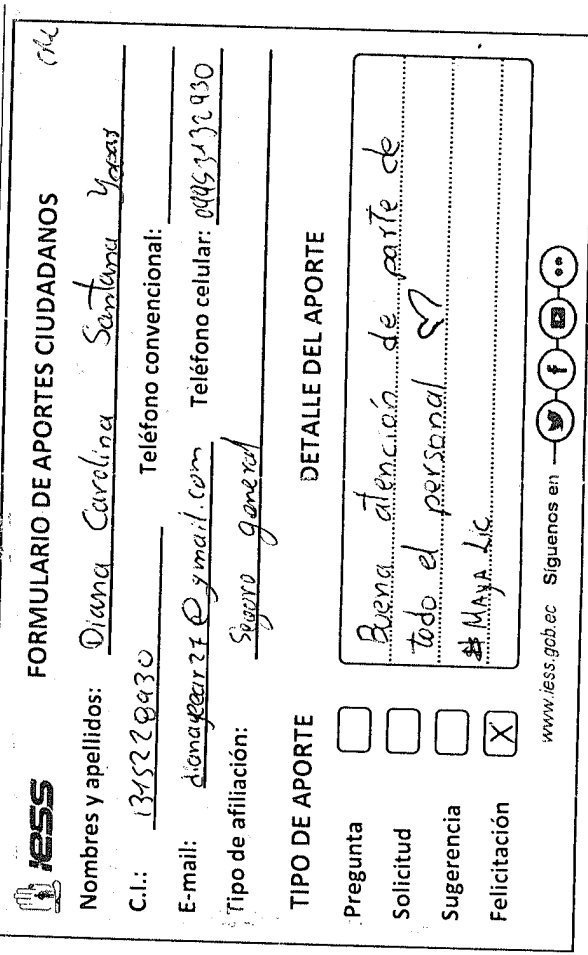 iess FORMULARIO DE APORTES CIUDADANOS
Nombres y apellidos: Diana Carolina Santana
C.I.:
Teléfono convencional:
E-mail: Teléfono celular:
Tipo de afiliación: Seguro general
TIPO DE APORTE
Pregunta
Solicitud
Sugerencia
Felicitación X
DETALLE DEL APORTE
Buena atención de parte de
todo el personal
MAYA Lic
www.iess.gob.ec Síguenos en